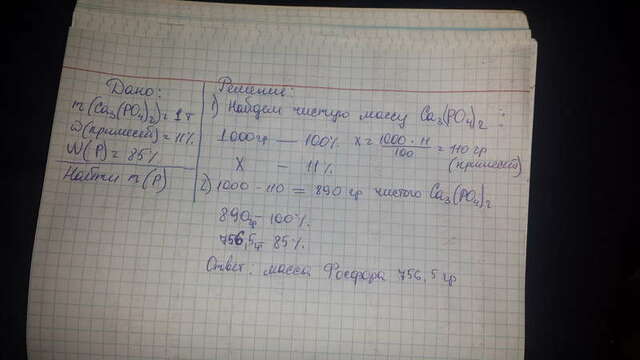 Дано:
m(Ca₃(PO₄)₂)= 1т
ω(примесей)= 11%
W(P)= 85%
Найти m(P)
Решение:
1) Найдем чистую массу Ca₃(PO₄)₂ :
1000гр — 100% x= 1000 · 11 / 100 = 110 гр
X — 11% (примесей)
2) 1000 - 110 = 890 гр чистого Ca₃(PO₄)₂
890гр - 100%
756,5гр 85%
Ответ: масса Фосфора 756,5 гр